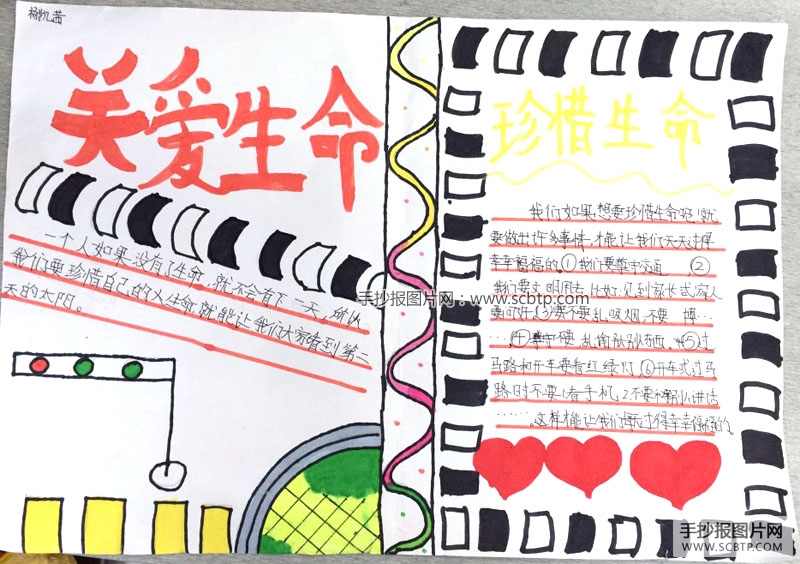 杨凯茜
关爱生命
一个人如果没有了生命,就不会有下一天,所以
我们要珍惜自己的人生命,就能让我们大家看到第二
天的太阳。
珍惜生命
我们如果想要珍惜生命呢!就
要做出许多事情,才能让我们天天过得
幸幸福福的。①我们要遵守交通 ②
我们要文明用语,比如:见到
要问好,③要不要乱吸烟,不要 博……
……④ 乱 东西, ⑤过
马路和开车要看红绿灯 ⑥开车或过马
路时不要1看手机,2.不要 讲话
……这样才能让我们 过得幸幸福福的。
手抄报图片网:www.scbtp.com
手抄报图片网
WWW.SCBTP.COM